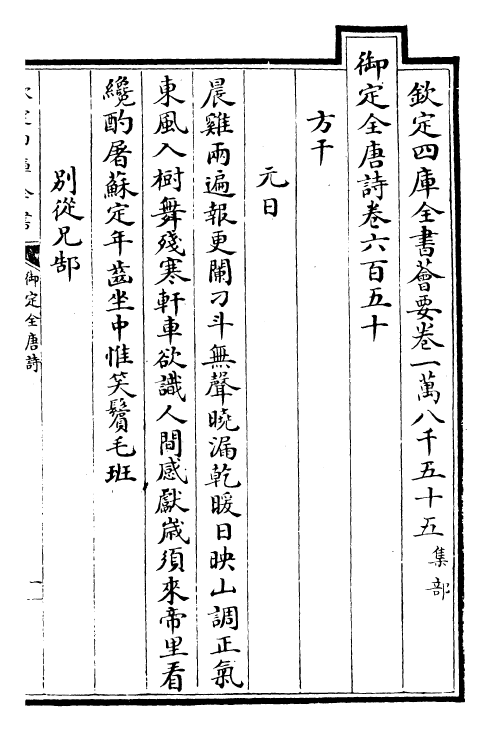 欽定四庫全書薈要卷一萬八千五十五 集部
御定全唐詩卷六百五十
方干
元日
晨雞兩遍報更闌刁斗無聲曉漏乾暖日映山調正氣
東風入樹舞殘寒軒車欲識人間感獻歲須來帝里看
纔酌屠蘇定年齒坐中惟笑鬢毛班
別從兄郜
御定全唐詩
一